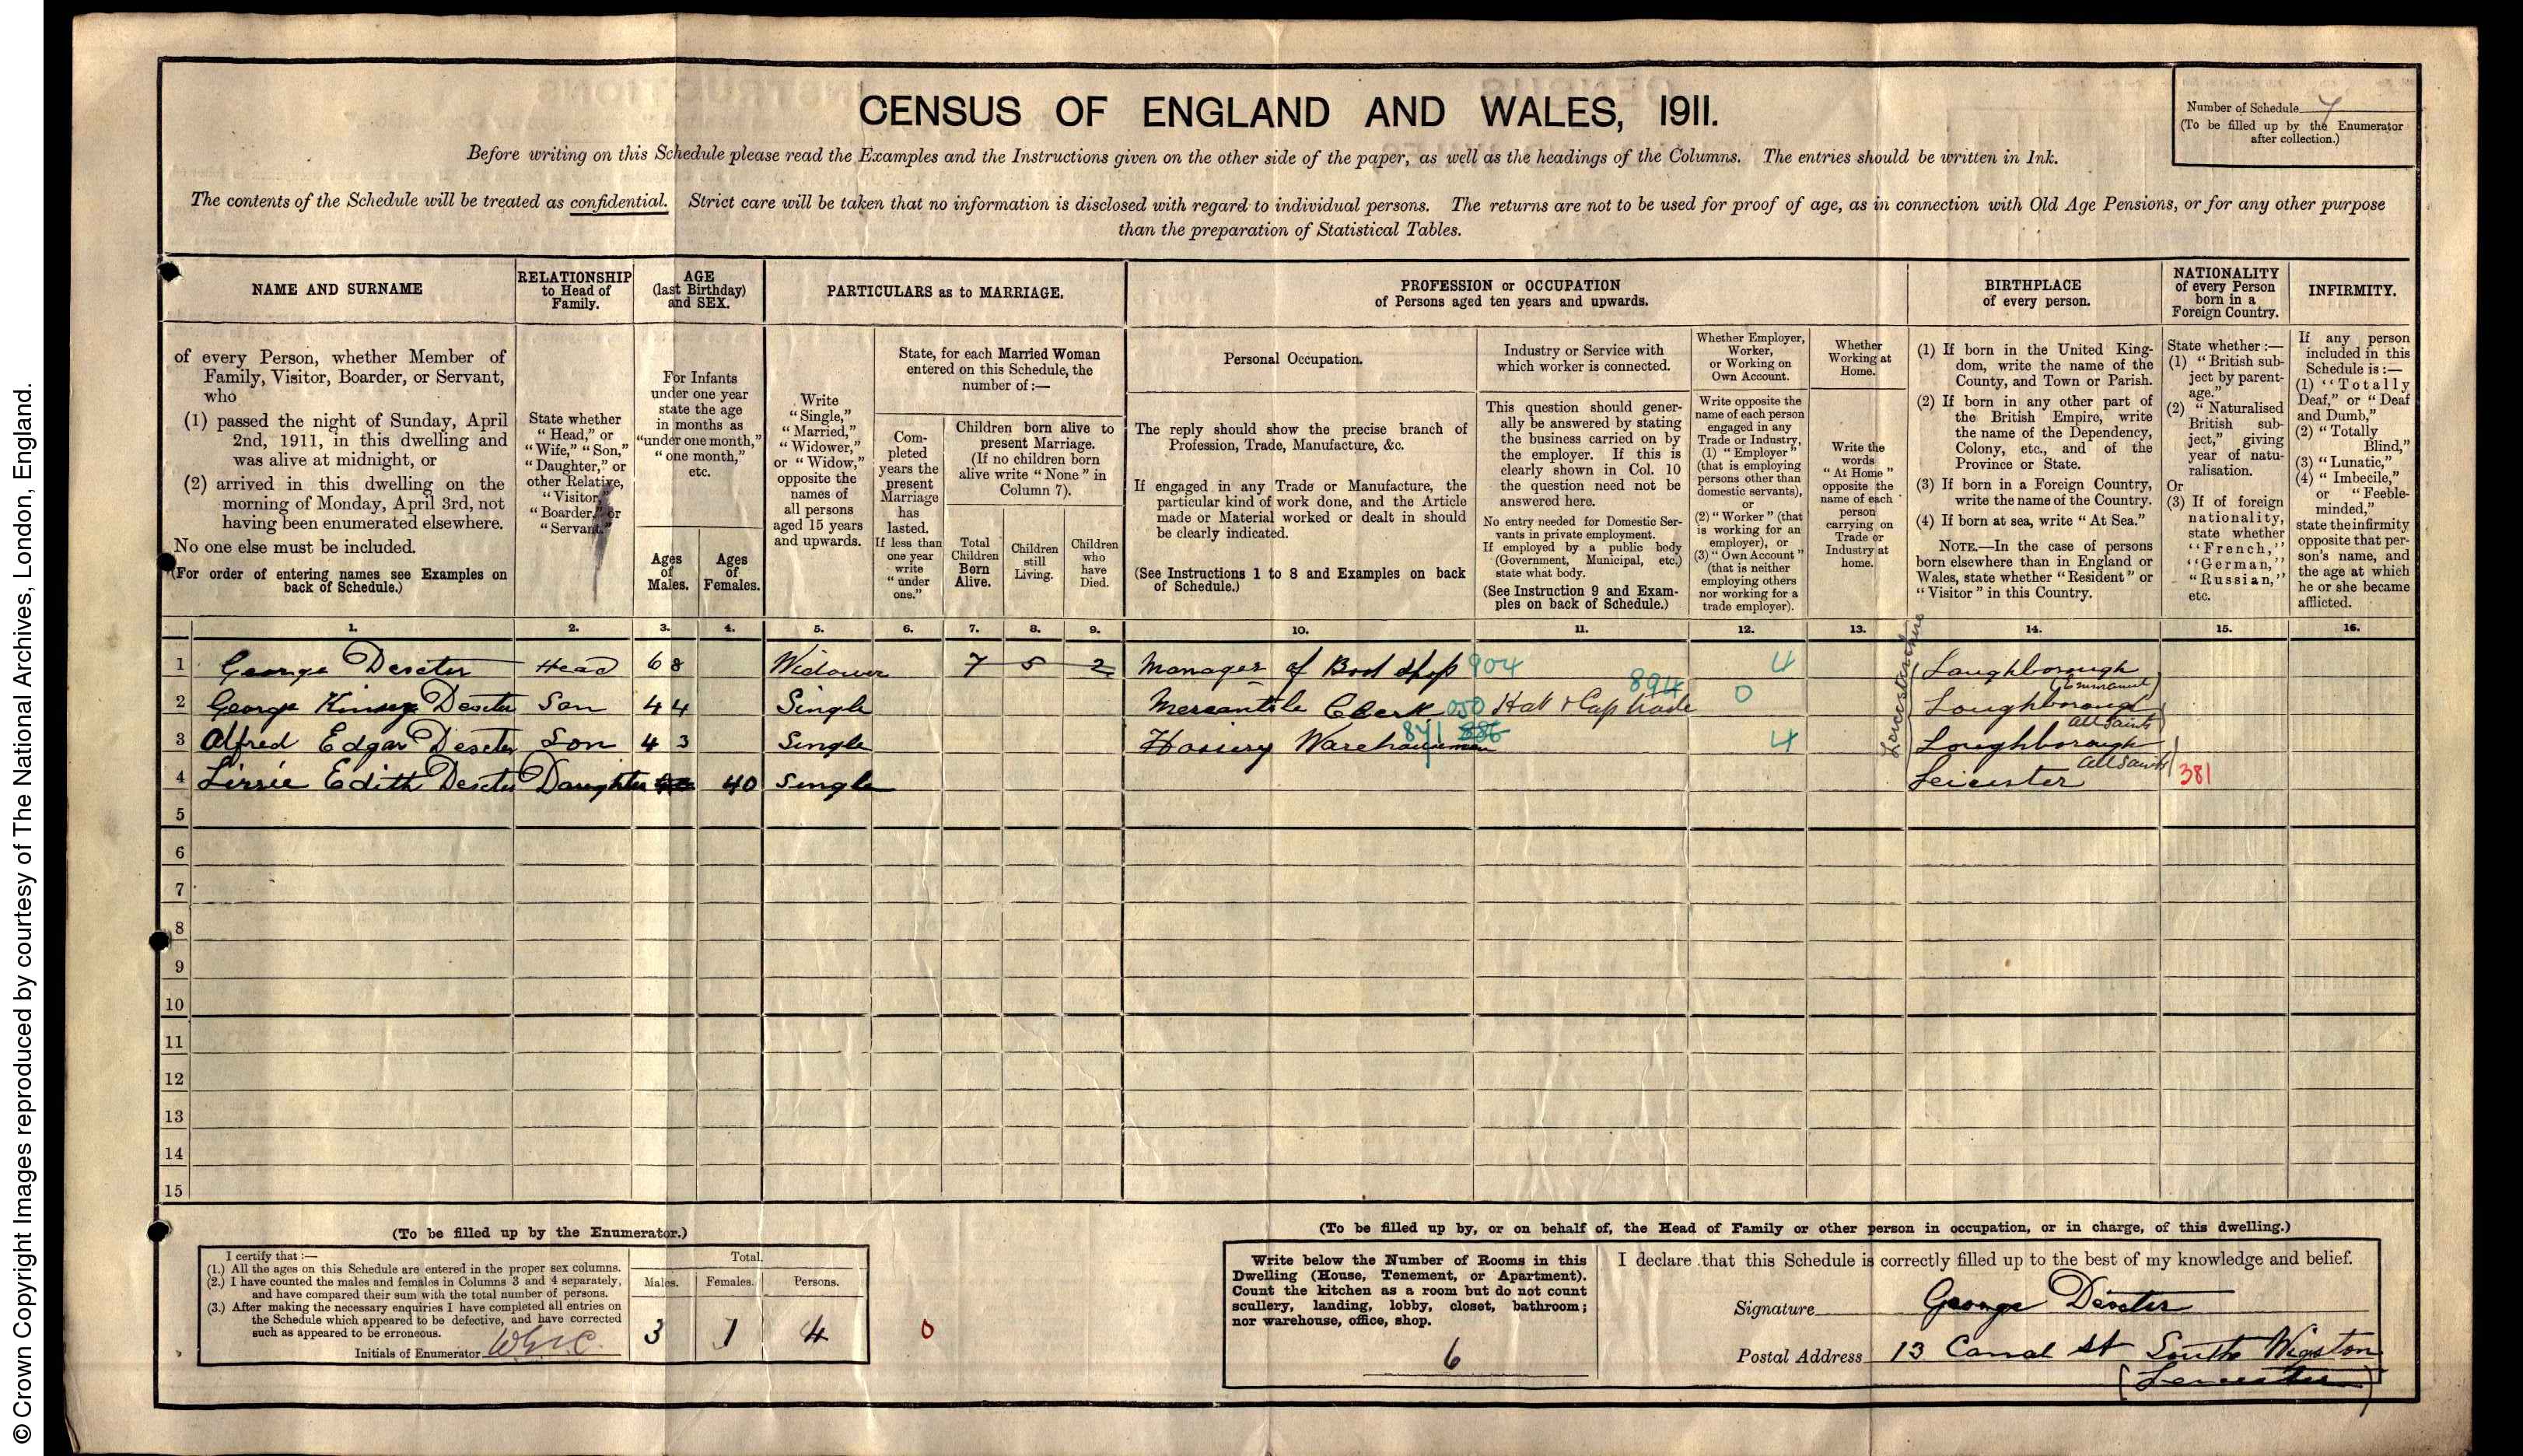 © Crown Copyright Images reproduced by courtesy of The National Archives, London, England.
CENSUS OF ENGLAND AND WALES, 1911.
Number of Schedule 7
(To be filled up by the Enumerator
after collection.)
Before writing on this Schedule please read the Examples and the Instructions given on the other side of the paper, as well as the headings of the Columns. The entries should be written in Ink.
The contents of the Schedule will be treated as confidential. Strict care will be taken that no information is disclosed with regard to individual persons. The returns are not to be used for proof of age, as in connection with Old Age Pensions, or for any other purpose
than the preparation of Statistical Tables.
NAME AND SURNAME
of every Person, whether Member of
Family, Visitor, Boarder, or Servant,
who
(1) passed the night of Sunday, April
2nd, 1911, in this dwelling and
was alive at midnight, or
(2) arrived in this dwelling on the
morning of Monday, April 3rd, not
having been enumerated elsewhere.
No one else must be included.
(For order of entering names see Examples on
back of Schedule.)
RELATIONSHIP
to Head of
Family.
State whether
"Head," or
"Wife," "Son,"
"Daughter," or
other Relative,
"Visitor,"
"Boarder," or
"Servant."
AGE
(last Birthday)
and SEX.
For Infants
under one year
state the age
in months as
"under one month,"
"one month,"
etc.
Ages
of
Males.
Ages
of
Females.
PARTICULARS as to MARRIAGE.
Write
"Single,"
"Married,"
"Widower,"
or "Widow,"
opposite the
names of
all persons
aged 15 years
and upwards.
State, for each Married Woman
entered on this Schedule, the
number of :—
Com-
pleted
years the
present
Marriage
has
lasted.
If less than
one year
write
"under
one."
Children born alive to
present Marriage.
(If no children born
alive write "None" in
Column 7).
Total
Children
Born
Alive.
Children
still
Living.
Children
who
have
Died.
PROFESSION or OCCUPATION
of Persons aged ten years and upwards.
Personal Occupation.
The reply should show the precise branch of
Profession, Trade, Manufacture, &c.
If engaged in any Trade or Manufacture, the
particular kind of work done, and the Article
made or Material worked or dealt in should
be clearly indicated.
(See Instructions 1 to 8 and Examples on back
of Schedule.)
Industry or Service with
which worker is connected.
This question should gener-
ally be answered by stating
the business carried on by
the employer. If this is
clearly shown in Col. 10
the question need not be
answered here.
No entry needed for Domestic Ser-
vants in private employment.
If employed by a public body
(Government, Municipal, etc.)
state what body.
(See Instruction 9 and Exam-
ples on back of Schedule.)
Whether Employer,
Worker,
or Working on
Own Account.
Write opposite the
name of each person
engaged in any
Trade or Industry,
(1) "Employer"
(that is employing
persons other than
domestic servants),
or
(2) "Worker" (that
is working for an
employer), or
(3) "Own Account"
(that is neither
employing others
nor working for a
trade employer).
Whether
Working at
Home.
Write the
words
"At Home"
opposite the
name of each
person
carrying on
Trade or
Industry at
home.
BIRTHPLACE
of every person.
(1) If born in the United King-
dom, write the name of the
County, and Town or Parish.
(2) If born in any other part of
the British Empire, write
the name of the Dependency,
Colony, etc., and of the
Province or State.
(3) If born in a Foreign Country,
write the name of the Country.
(4) If born at sea, write "At Sea."
NOTE.—In the case of persons
born elsewhere than in England or
Wales, state whether "Resident" or
"Visitor" in this Country.
NATIONALITY
of every Person
born in a
Foreign Country.
State whether :—
(1) "British sub-
ject by parent-
age."
(2) "Naturalised
British sub-
ject," giving
year of natu-
ralisation.
Or
(3) If of foreign
nationality,
state whether
"French,"
"German,"
"Russian,"
etc.
INFIRMITY.
If any person
included in this
Schedule is :—
(1) "Totally
Deaf," or "Deaf
and Dumb,"
(2) "Totally
Blind,"
(3) "Lunatic,"
(4) "Imbecile,"
or "Feeble-
minded,"
state the infirmity
opposite that per-
son's name, and
the age at which
he or she became
afflicted.
1. 2. 3. 4. 5. 6. 7. 8. 9. 10. 11. 12. 13. 14. 15. 16.
Leicestershire
1 George Dexter Head 68 Widower 7 5 2 Manager of Boot Shop 904 4 Loughborough
(Emmanuel)
2 George Dexter Son 44 Single Mercantile Clerk 050 Hat & Cap trade 894 0 Loughborough
All Saints
3 Alfred Edgar Dexter Son 43 Single Hosiery Warehouseman 871 886 4 Loughborough
All Saints
4 Lizzie Edith Dexter Daughter 40 Single Leicester 381
5
6
7
8
9
10
11
12
13
14
15
(To be filled up by the Enumerator.)
I certify that :—
(1.) All the ages on this Schedule are entered in the proper sex columns.
(2.) I have counted the males and females in Columns 3 and 4 separately,
and have compared their sum with the total number of persons.
(3.) After making the necessary enquiries I have completed all entries on
the Schedule which appeared to be defective, and have corrected
such as appeared to be erroneous.
Initials of Enumerator
Total.
Males. Females. Persons.
3 1 4
0
(To be filled up by, or on behalf of, the Head of Family or other person in occupation, or in charge, of this dwelling.)
Write below the Number of Rooms in this
Dwelling (House, Tenement, or Apartment).
Count the kitchen as a room but do not count
scullery, landing, lobby, closet, bathroom;
nor warehouse, office, shop.
6
I declare that this Schedule is correctly filled up to the best of my knowledge and belief.
Signature George Dexter
Postal Address 13 Canal St South Wigston
(Leicester)